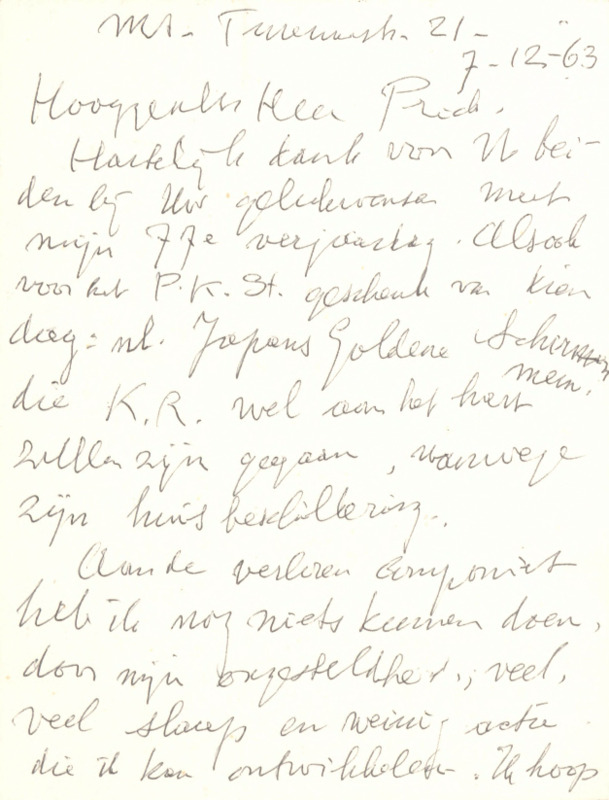 21-
7-12-63
Heer
Hartelijk dank voor U bei-
den bij Uw gelukwensen met
mijn 77e verjaardag. Alsook
voor het P.K. St. geschenk van
dag: nl. Japans Goldene Scher
men.
die K.R. wel aan het hart
zullen zijn gegaan, vanwege
zijn huisbeschildering.
Aan de verloren componist
heb ik nog niets kunnen doen,
door mijn ongesteldheid; veel,
veel slaap en weinig actie
die ik kan ontwikkelen. Ik hoop